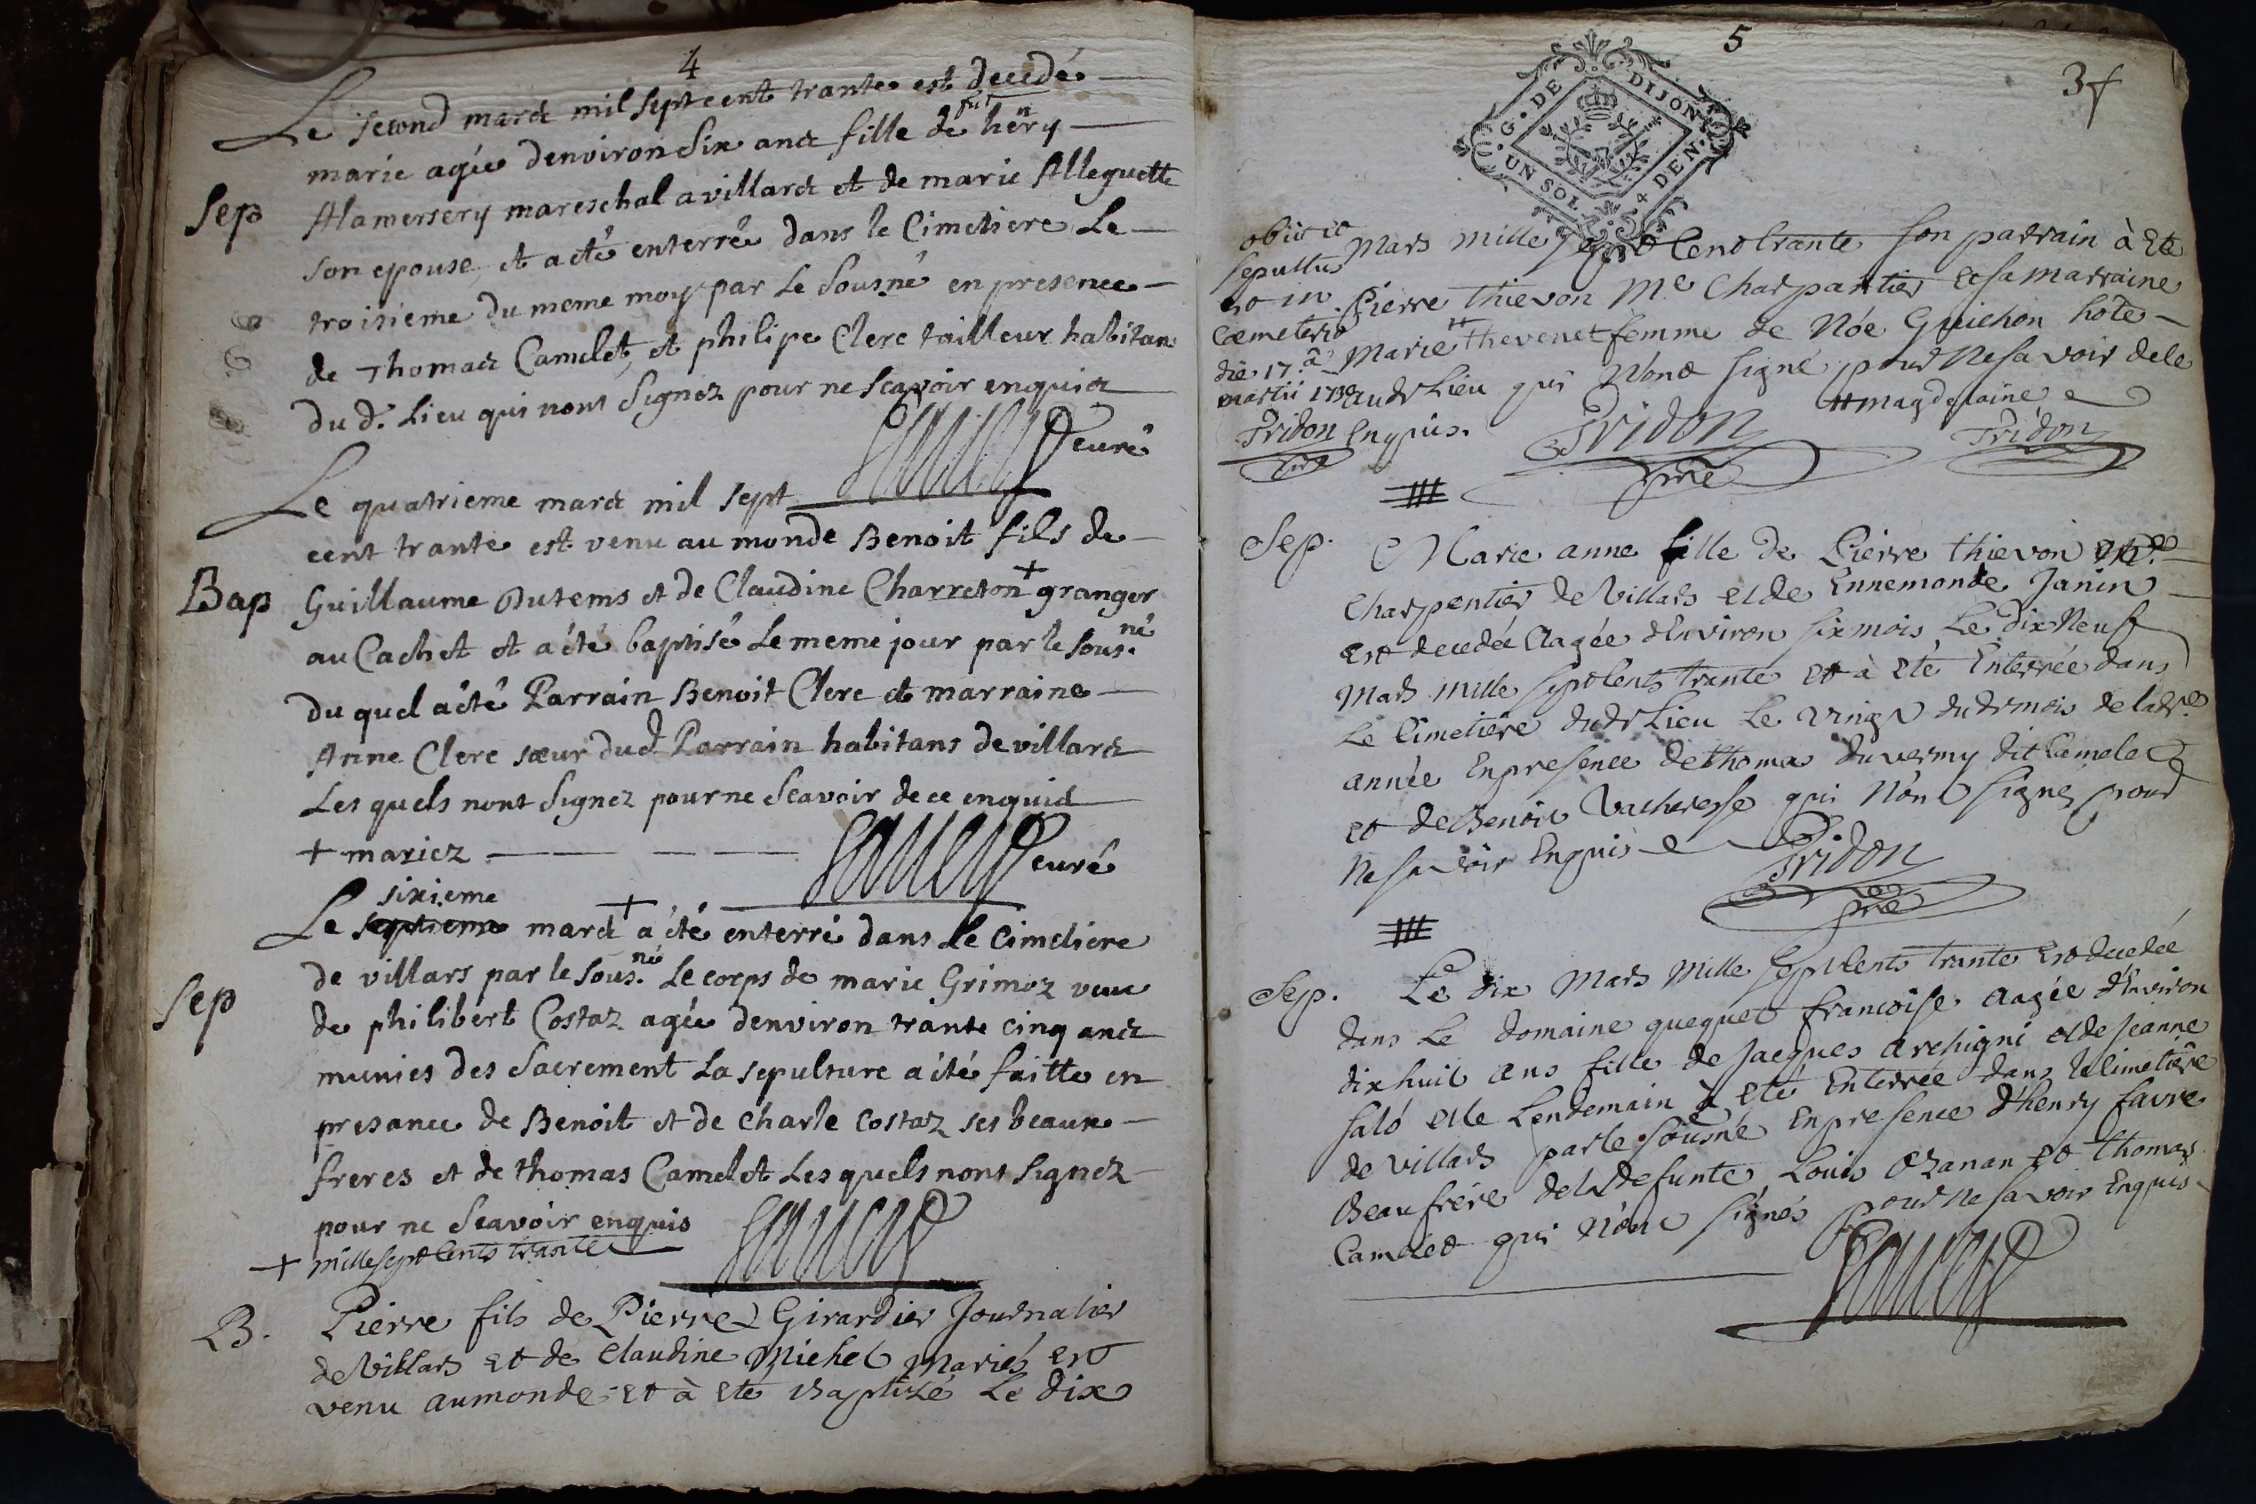 4
Le second mars mil sept cent trante est decedé
marie agée denviron six ans fille de fut hēry
Sep
Alamersery mareschal a villars et de marie Alleguette
son epouse et a eté enterré dans le Cimetiere Le
troisieme du meme moy par Le Sousné en presence
de Thomas Camelet, et philipe Clerc tailleur habitans
du d. Lieu qui nont Signez pour ne Scavoir enquis
curé
Le quatrieme mars mil sept
cent trante est venu au monde Benoit fils de
Bap
Guillaume Dutems et de Claudine Charreton + granger
au Cachet et a été baptisé Le meme jour par le sous.né
du quel a été Parrain Benoit Clerc et marraine
Anne Clerc sœur dud. Parrain habitans de villars
Les quels nont Signez pour ne Scavoir de ce enquis
+ mariez
curé
sixieme
Le septieme mars + a été enterré dans le Cimetiere
de villars par le sous.né Le corps de marie Grimoz veuve
Sep
de philibert Costaz agée denviron trante cinq ans
munies des Sacrement La sepulture a été faitte en
presance de Benoit et de Charle Costaz ses beaux
freres et de thomas Camelet Les quels nont Signez
pour ne Scavoir enquis
+ mille sept Cents trante
B.
Pierre fils de Pierre Girardier Journalier
de Villars et de Claudine Michel Mariés est
venu au monde et à eté Baptizé Le dix
5
3f
G. DE DIJON
UN SOL 4 DEN.
obiit et
sepultus
est in
Cœmeterio
die 17.a
martii 1730
Tridon
ptre
Mars Mille sept Cent trante son parrain à Eté
Pierre Thievon Me Charpantier et sa Marraine
Marie # thevenet femme de Nóe Guichon hote
audt Lieu qui N'ont signé pour Ne savoir de le
Enquis.
# magdelaine
Tridon
Tridon
ptre
Sep.
Marie anne fille de Pierre thievon
Charpentier de Villars et de Ennemonde Janin
est decedée Aagée d'Environ six mois Le dix Neuf
Mars mille sept Cents trante et à eté Enterrée dans
Le Cimetiere dudt Lieu Le Vingt dudt mois de ladte
année En presence de thoma duvermy dit Camelet
et de Benoit Vacheresse qui N'ont signes pour
Ne savoir Enquis
Tridon
ptre
Sep.
Le dix Mars Mille sept Cents trante Est decedée
dans Le domaine queguet francoise Aagée d'Environ
dix huit ans fille de Jacques archigni et de Jeanne
falò et le Lendemain à eté Enterrée dans le Cimetière
de Villars par le sousné En presence d'henry favre
Beaufrére de la defunte, Louis Ozanan et Thomas
Camelet qui N'ont signés pour Ne savoir Enquis